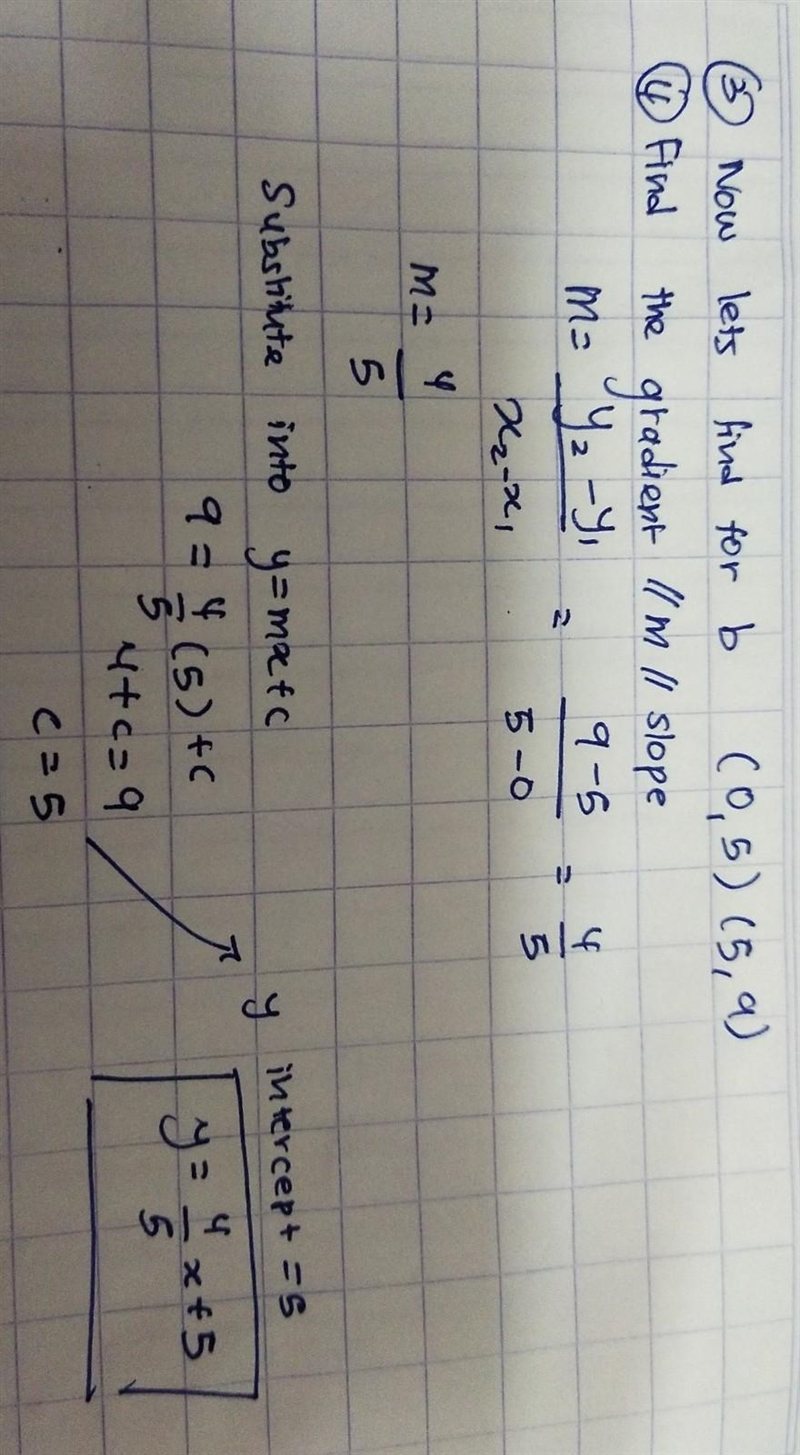 ③ Now lets find for b (0,5) (5,9)
④ Find the gradient // m // slope
m = y₂ - y₁ / x₂ - x₁ = 9 - 5 / 5 - 0 = 4/5
m = 4/5
Substitute into y = mx + c
9 = 4/5 (5) + c
4 + c = 9
c = 5
y intercept = 5
y = 4/5 x + 5